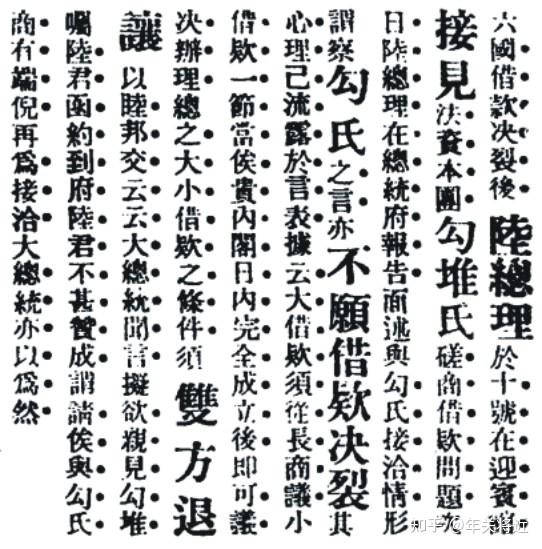 六國借款决裂後陸總理於十號在迎賓
接見法資本團勾堆氏磋商借欵問題
日陸總理在總統府報告面述與勾氏接洽情形
謂察勾氏之言亦不願借欵决裂其
心理已流露於言表據云大借欵須從長商議小
借欵一節當俟貴內閣日內完全成立後即可議
决辦理總之大小借欵之條件須雙方退
讓以睦邦交云云大總統聞書擬欲親見勾堆
囑陸君函約到府陸君不甚贊成謂請俟與勾氏
商有端倪再爲接洽大總統亦以爲然
知乎 @年关将近